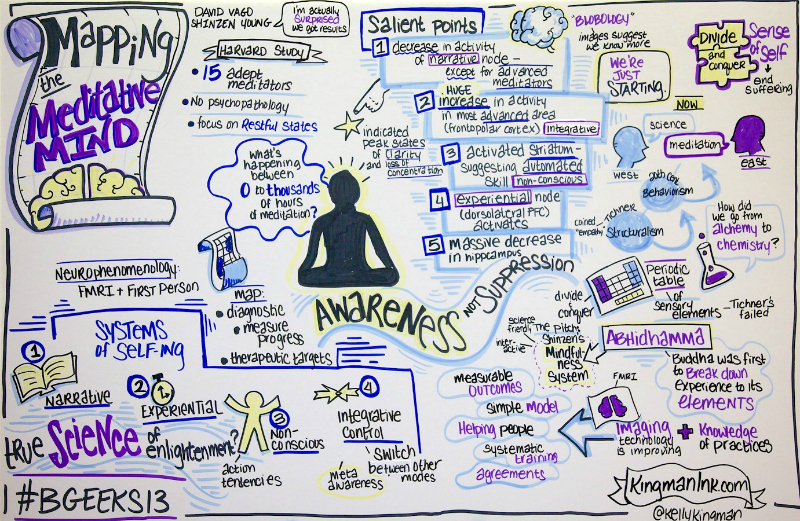 Mapping
the
Meditative
MIND
DAVID VAGO
SHINZEN YOUNG
I'm actually
SURPRISED
we got results
HARVARD STUDY
• 15 adept
meditators
• No psychopathology
• focus on Restful STATES
What's
happening
between
0 to thousands
of hours
of meditation?
indicated
peak states
of clarity
and loss of
concentration
Salient Points
1 decrease in activity
of narrative node -
except for advanced
meditators
HUGE
2 increase in activity
in most advanced area
(frontopolar cortex) integrative
3 activated striatum -
suggesting automated
skill non-conscious
4 experiential node
(dorsolateral PFC)
activates
5 massive decrease
in hippocampus
"BLOBOLOGY"
images suggest
we know more
WE'RE
JUST
STARTING.
DIVIDE
and
conquer
Sense
of
Self
↓
end
suffering
NOW
science
meditation
west
east
Behaviorism
coined
"empathy"
Tichner
Structuralism
How did
we go from
alchemy to
chemistry?
Neurophenomenology:
FMRI + First Person
map:
• diagnostic
• measure
progress
• therapeutic targets
AWARENESS NOT SUPPRESSION
Periodic
table
of
sensory
elements - Tichner's
failed
divide
&
conquer
science
friendly
inter-
active
The Pitch:
Shinzen's
Mindful-
ness
System
Abhidhamma
Buddha was first
to Break down
Experience to its
elements
SYSTEMS
of SELF-ING
1
NARRATIVE
2
EXPERIENTIAL
3
NON-
CONSCIOUS
action
tendencies
4
Integrative
Control
↓
switch
between other
modes
meta
awareness
measurable
OUTCOMES
simple model
Helping people
systematic
training
agreements
FMRI
Imaging
technology
is improving
+ Knowledge
of practices
true Science of
enlightenment?
#BGEEKS13
KingmanInk.com
@kellykingman